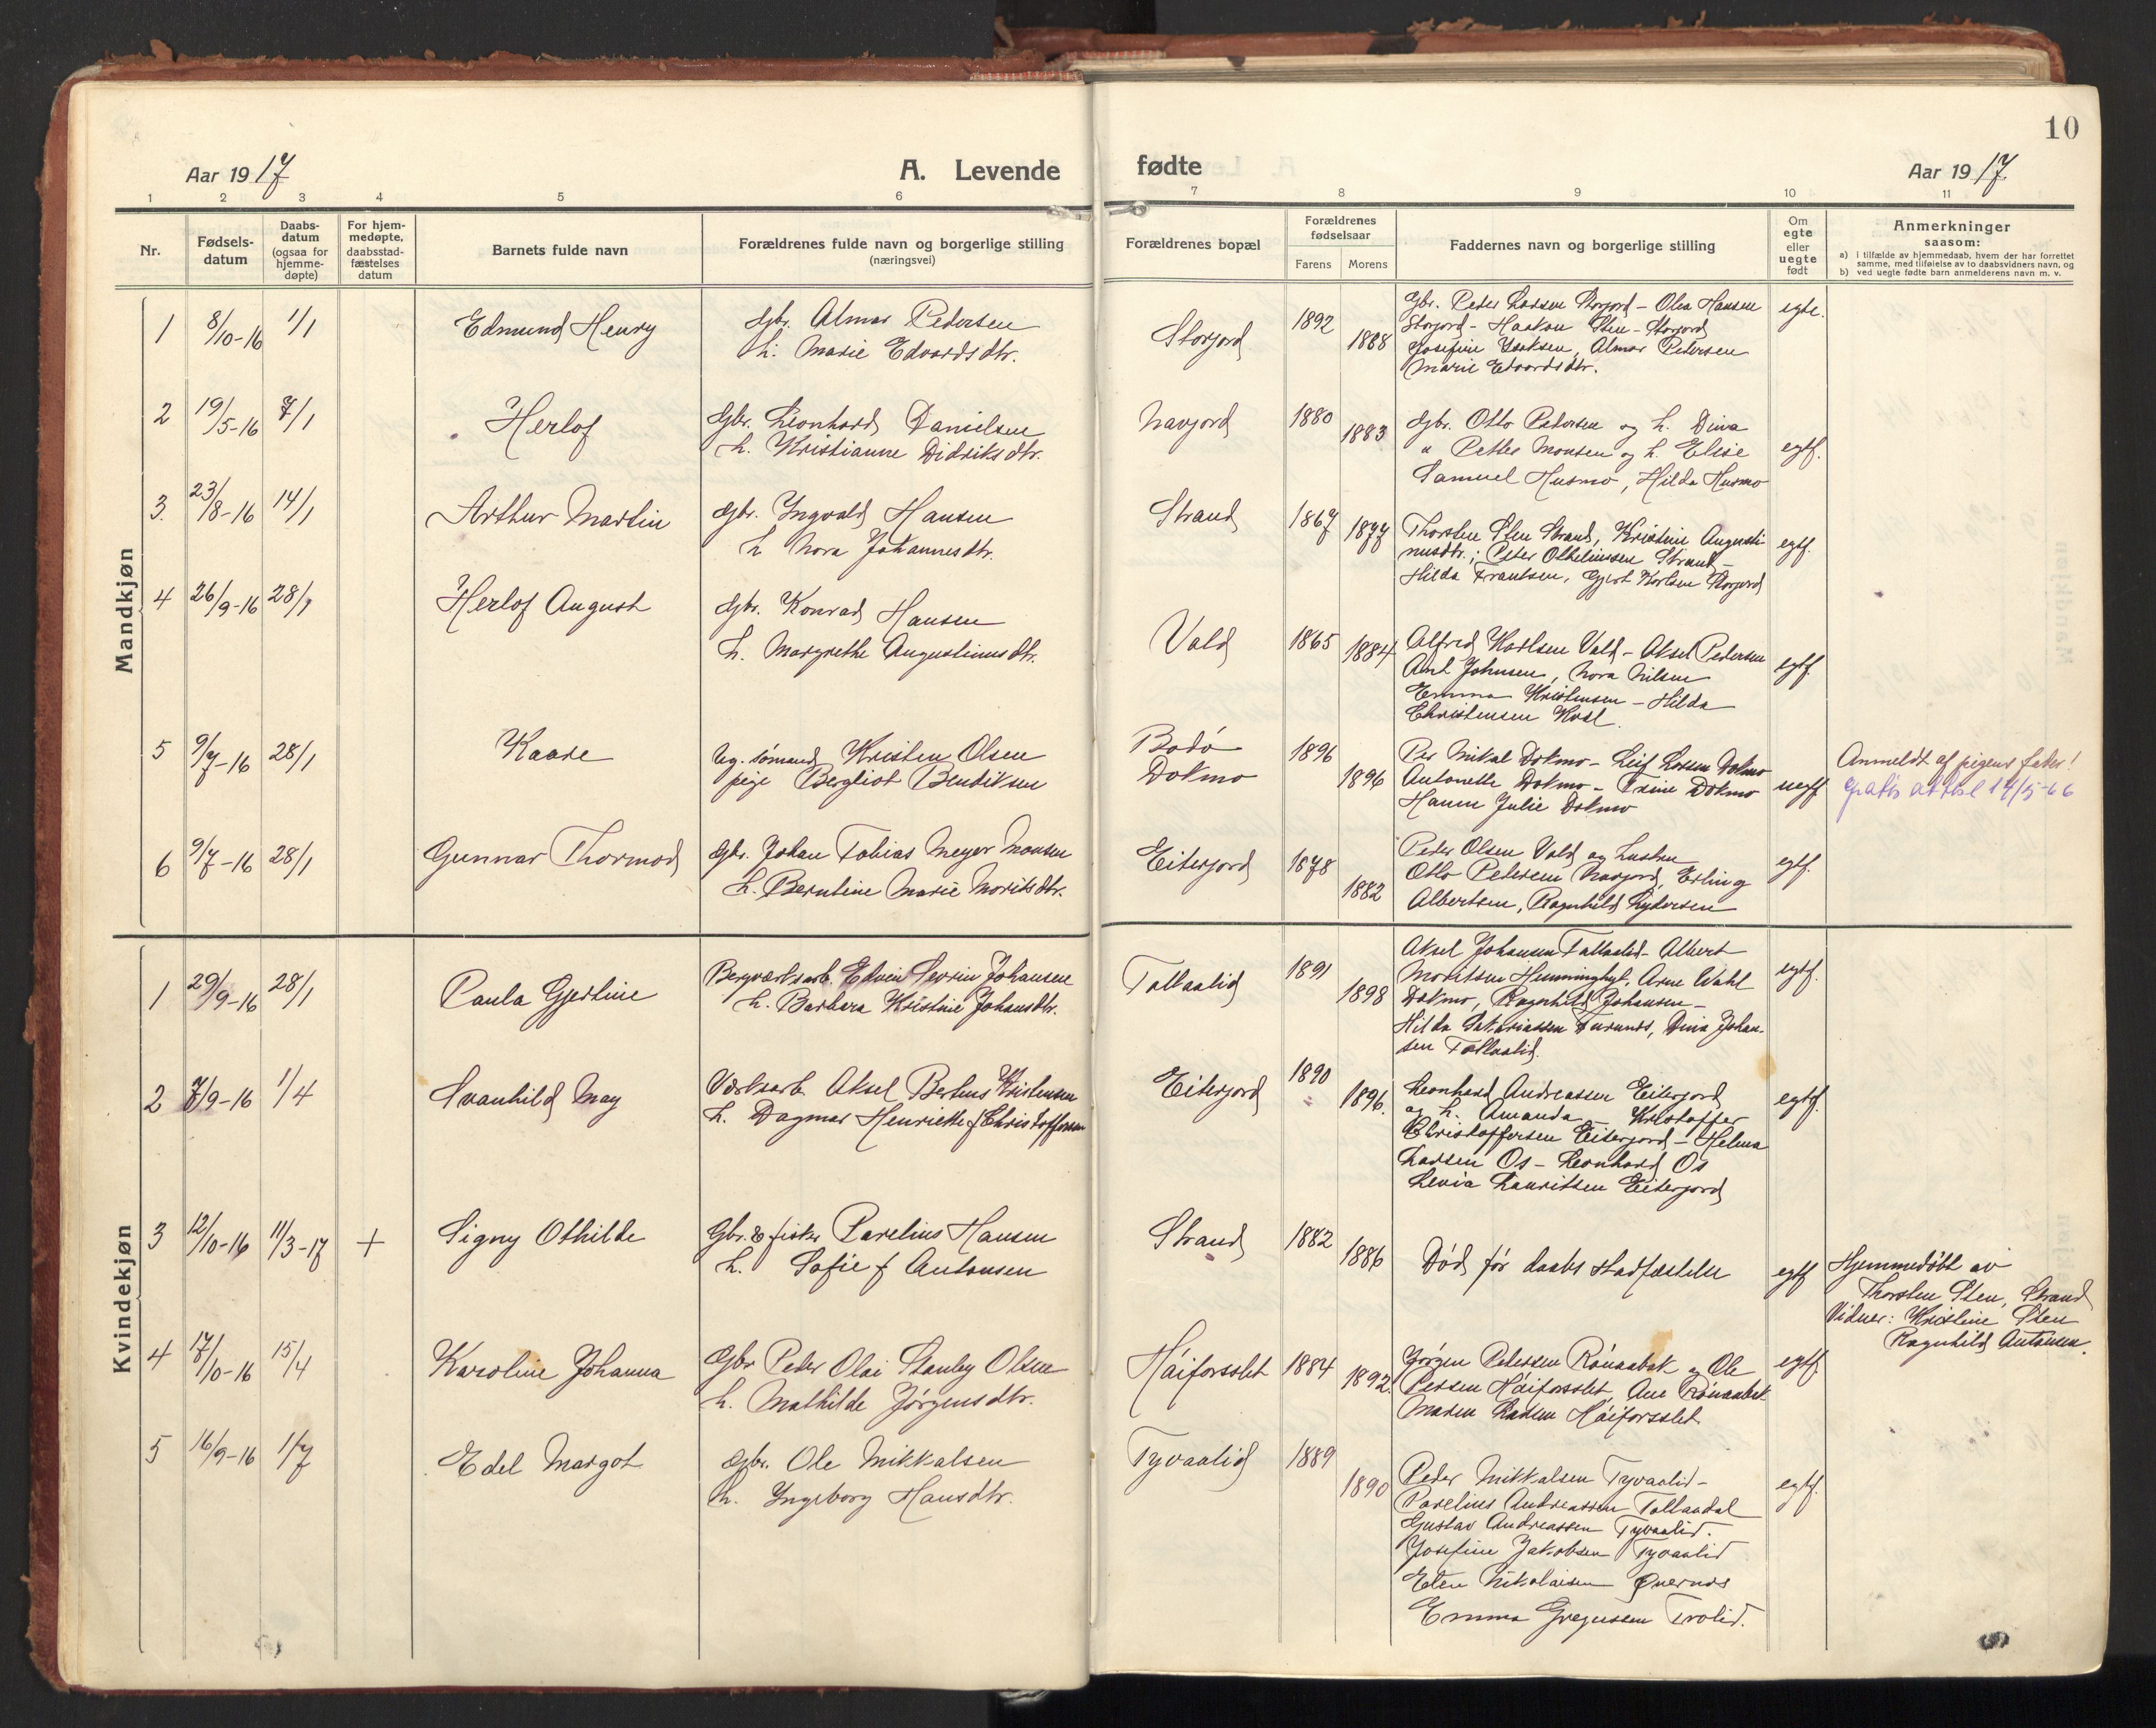 10
Aar 1917
A. Levende
fødte
Aar 1917
1 2 3 4 5 6 7 8 9 10 11
Nr.
Fødsels-
datum
Daabs-
datum
(ogsaa for
hjemme-
døpte)
For hjem-
medøpte,
daabsstad-
fæstelses
datum
Barnets fulde navn
Forældrenes fulde navn og borgerlige stilling
(næringsvei)
Forældrenes bopæl
Forældrenes
fødselsaar
Farens Morens
Faddernes navn og borgerlige stilling
Om
egte
eller
uegte
født
Anmerkninger
saasom:
a) i tilfælde av hjemmedaab, hvem der har forrettet
samme, med tilføielse av to daabsvidners navn, og
b) ved uegte fødte barn anmelderens navn m. v.
Mandkjøn
1 8/10-16 1/1 Edmund Henry
Gbr. Almar Pedersen
h. Marie Edvardsdtr.
Storjord 1892 1888
Gbr. Peder Larsen Storjord - Olea Hansen
Storjord - Haakon Sten - Storjord
Josefine Isaksen, Almar Petersen
Marie Edvardsdtr.
egte.
2 19/5-16 7/1 Herlof
Gbr. Leonhard Danielsen
h. Kristianne Didriksdtr.
Navjord 1880 1883
Gbr. Otto Petersen og h. Dina
" Petter Monsen og h. Elise
Samuel Husmo, Hilda Husmo
egtf.
3. 23/8-16 14/1 Arthur Martin
Gbr. Ingvald Hansen
h. Nora Johannesdtr.
Strand 1867 1877
Thorsten Sten Strand, Kristine Augusti-
nusdtr.; Peter Othelinssen Strand -
Hilda Frantsen, Gjert Karlsen Storjord
egtf.
4 26/9-16 28/1 Herlof August
Gbr. Konrad Hansen
h. Margrethe Augustinusdtr.
Vald 1865 1884
Alfred Karlsen Vald - Aksel Pedersen
Johnsen, Nora Nilsen
Emma Kristensen - Hilda
Christensen
egtf.
5 9/7-16 28/1 Kaare
Ug. sømand Kristen Olsen
pige Bergliot Bendiksen
Bodö
Dokmo
1896 1896
Per Mikal Dokmo - Leif Larsen Dokmo
Antonette Dokmo - Trine Dokmo
Hanna Julie Dokmo
uegtf
Anmeldt af pigens fader!
Gratis attest 14/5-66
6 9/7-16 28/1 Gunnar Thormod
Gbr. Johan Tobias Meyer Monsen
h. Berntine Marie Moritsdtr.
Eiterjord 1878 1882
Peder Olsen Vald og hustru
Otto Petersen Navjord, Erling
Albertsen, Ragnhild Lydersen
egtf.
Kvindekjøn
1 29/9-16 28/1 Paula Gjertine
Bergværksarb. Edvin Sevrin Johansen
h. Barbara Kristine Johansdtr.
Tollaalid 1891 1898
Aksel Johansen Tollaalid - Albert
Moritsen Hemminghyt, Arne Wahl
Dokmo, Ragnhild Johansen -
Hilda Sakariassen Furunes, Dina Johan-
sen Tollaalid.
egtf.
2 7/9-16 1/4 Svanhild May
Værksarb. Aksel Berteus Kristensen
h. Dagmar Henriette f Christoffersen
Eiterjord 1890 1896.
Leonhard Andreassen Eiterjord
og h. Amanda - Kristoffer
Christoffersen Eiterjord - Helma
Larsen Os - Leonhard Os
Levia Lauritsen Eiterjord
egtf.
3 12/10-16 11/3-17 + Signy Othilde
Gbr. & fisker Parelius Hansen
h. Sofie f Antonsen
Strand 1882 1886
Död før daabs stadfæstelse
egtf
Hjemmedöbt av
Thorsten Sten, Strand
Vidner: Kristine Sten
Ragnhild Antonsen.
4 17/10-16 15/4 Karoline Johanna
Gbr Peder Olai Stanley Olsen
h. Mathilde Jørgensdtr.
Háiforsslet 1884 1892.
Jørgen Petersen Rónaabak og Ole
Persen Háiforsslet, Ane Rónaabak
Maren Larsen Háiforsslet
egtf.
5 16/9-16 1/7 Edel Margot
Gbr. Ole Mikkalsen
h. Ingeborg Hansdtr.
Tyvaalid 1889 1890
Peder Mikkalsen Tyvaalid -
Parelius Andreassen Tollaadal
Gustav Andreassen Tyvaalid.
Josefine Jakobsen Tyvaalid
Nikolaisen Qvernes
Emma Gregussen Trolid.
egtf.